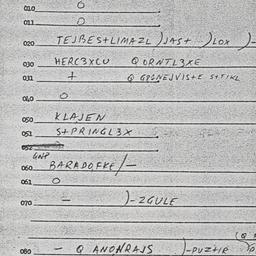 010 O
011 O
020 TEJBES+LIMAZL)JAS+ )LOX )-
030 HERC3XCU Q ORNTL3XE
031 + Q GPGNEJVIS+E S+TIKL
040 O
050 KLAJEN
051 S+PRINGL3X
052
060 BARADOFKE/-
061 O
070 - )-ZGULE
080 - Q ANONRAJS )-PUZ+IR